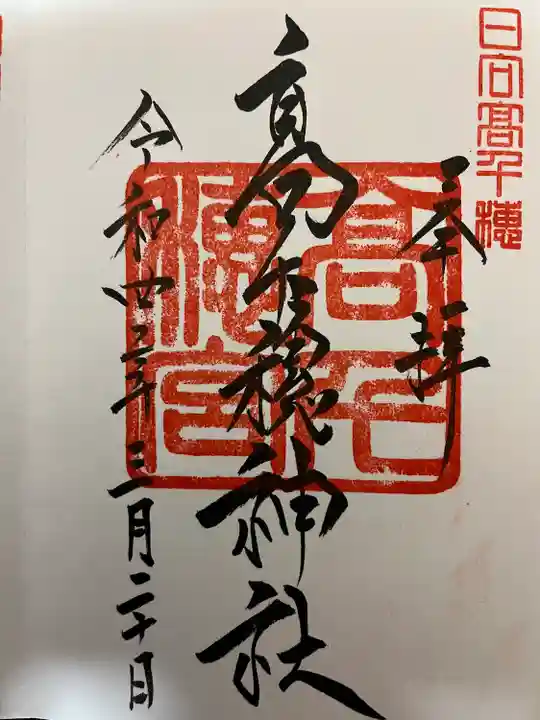 日向高千穂
奉拝
高千穂神社
高千穂宮
令和四年三月二十日